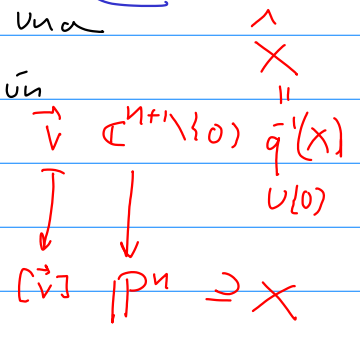 una
ún
X̂
||
v⃗ ℂⁿ⁺¹\{0} q⁻¹(X)
∪{0}
↓ ↓
[v⃗] ℙⁿ ⊇ X